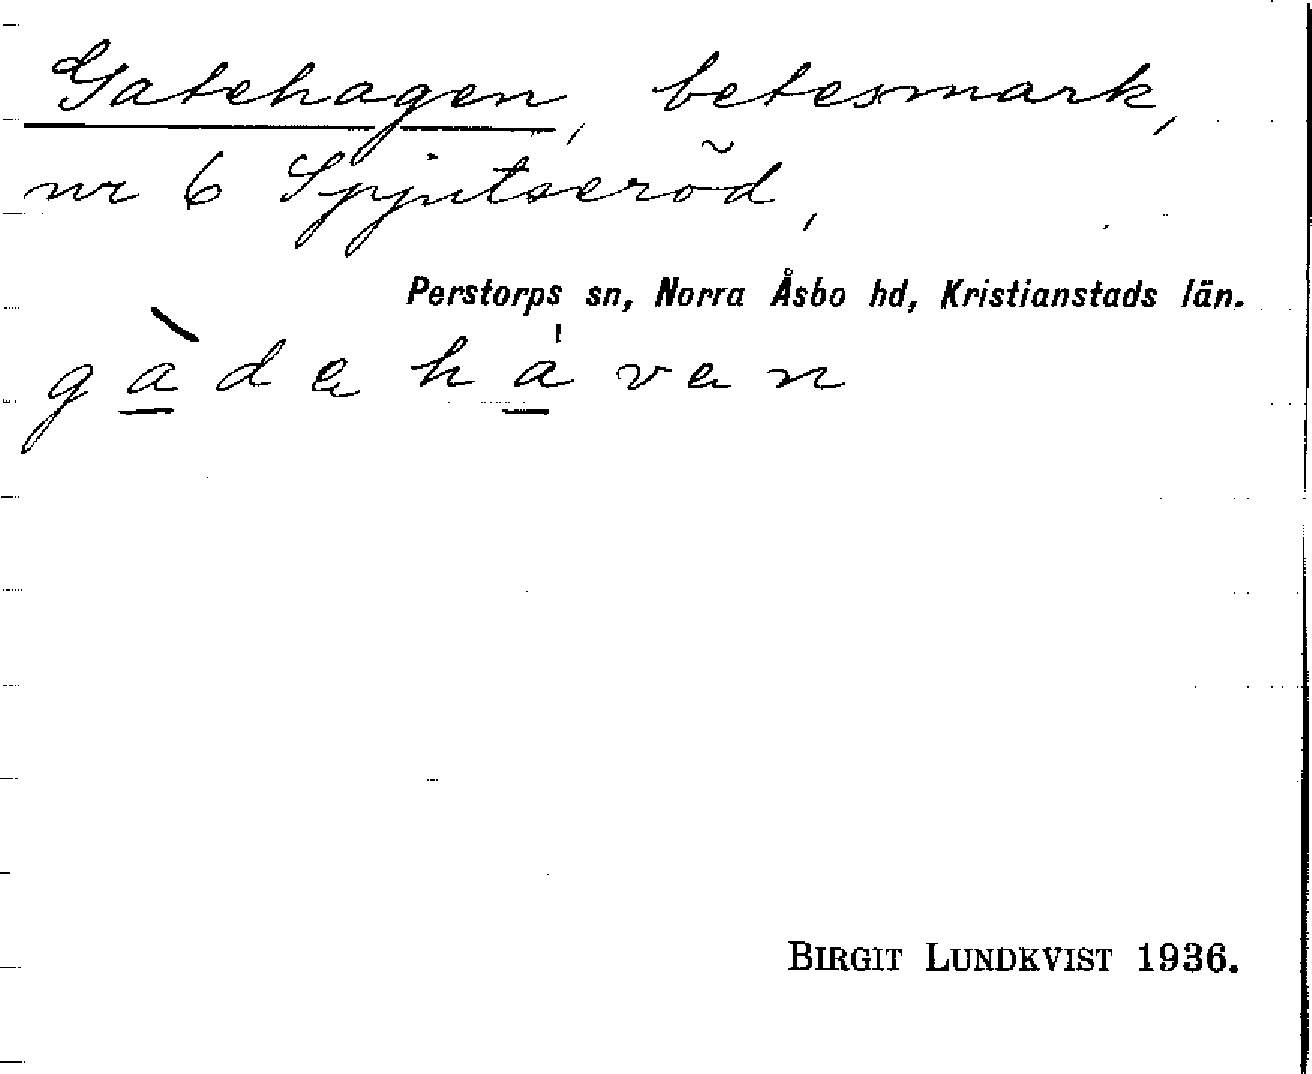 Gatehagen, betesmark,
nr 6 Spjutseröd,
Perstorps sn, Norra Åsbo hd, Kristianstads län.
gàdehaven
BIRGIT LUNDKVIST 1936.